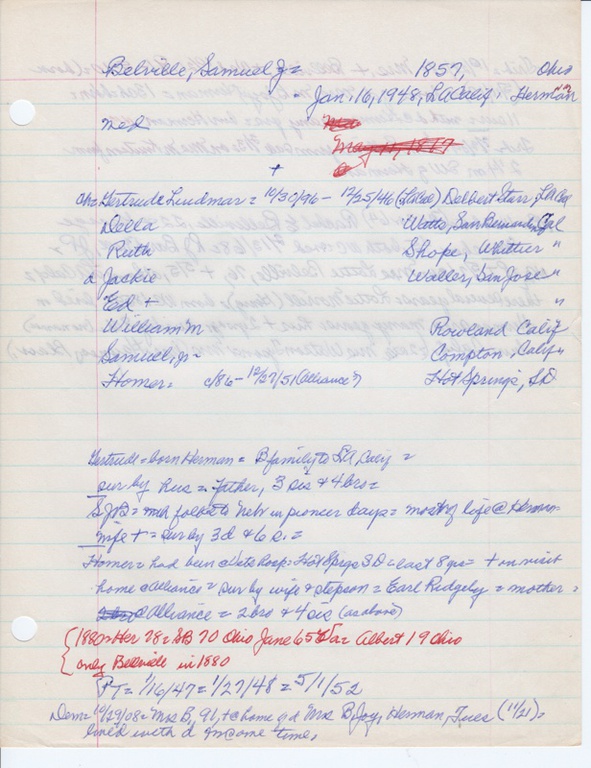 Belville, Samuel J = 1857, Ohio
- Jan. 16, 1948, LA Calif. Herman
med
May 17, 1817
+
ch = Gertrude Lindmar = 10/30/96 - 12/25/46 (LACal) Delbert Starr, LA Cal
Della Watts, San Bernardino, Cal
Ruth Shope, Whittier "
d Jackie Waller, San Jose "
Ed + "
William M Rowland Calif
Samuel, Jr - Compton, Calif
Homer = c/86 - 12/27/51 (alliance) Hot Springs, SD
Gertrude = born Herman = B family to LA, Calif =
sur by hus = father, 3 sis & 4 bro =
SJB = with folks to Nebr in pioneer days = most of life @ Herman =
wife + = sur by 3 d & 6 s. =
Homer = had been @ State hosp = Hot Sprgs SD = last 8 yrs = + on visit
home @ alliance = sur by wife & stepson = Earl Ridgely = mother =
@ alliance = 2 bro & 4 sis (as above)
1880 = Her 78 = SB 70 Ohio Jane 65 Pa = Albert 19 Ohio
only Bellville in 1880
PT = 1/16/47 = 1/27/48 = 5/1/52
Dem = 10/29/08 = Mrs B, 91, + @ home of d Mrs B Joy, Herman, Tues (11/21) =
lived with d some time.